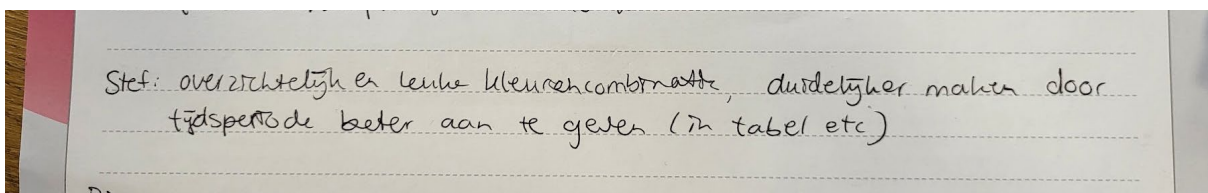 Stef: overzichtelijk en leuke kleurencombinatie, duidelijker maken door
tijdsperiode beter aan te geven (in tabel etc)